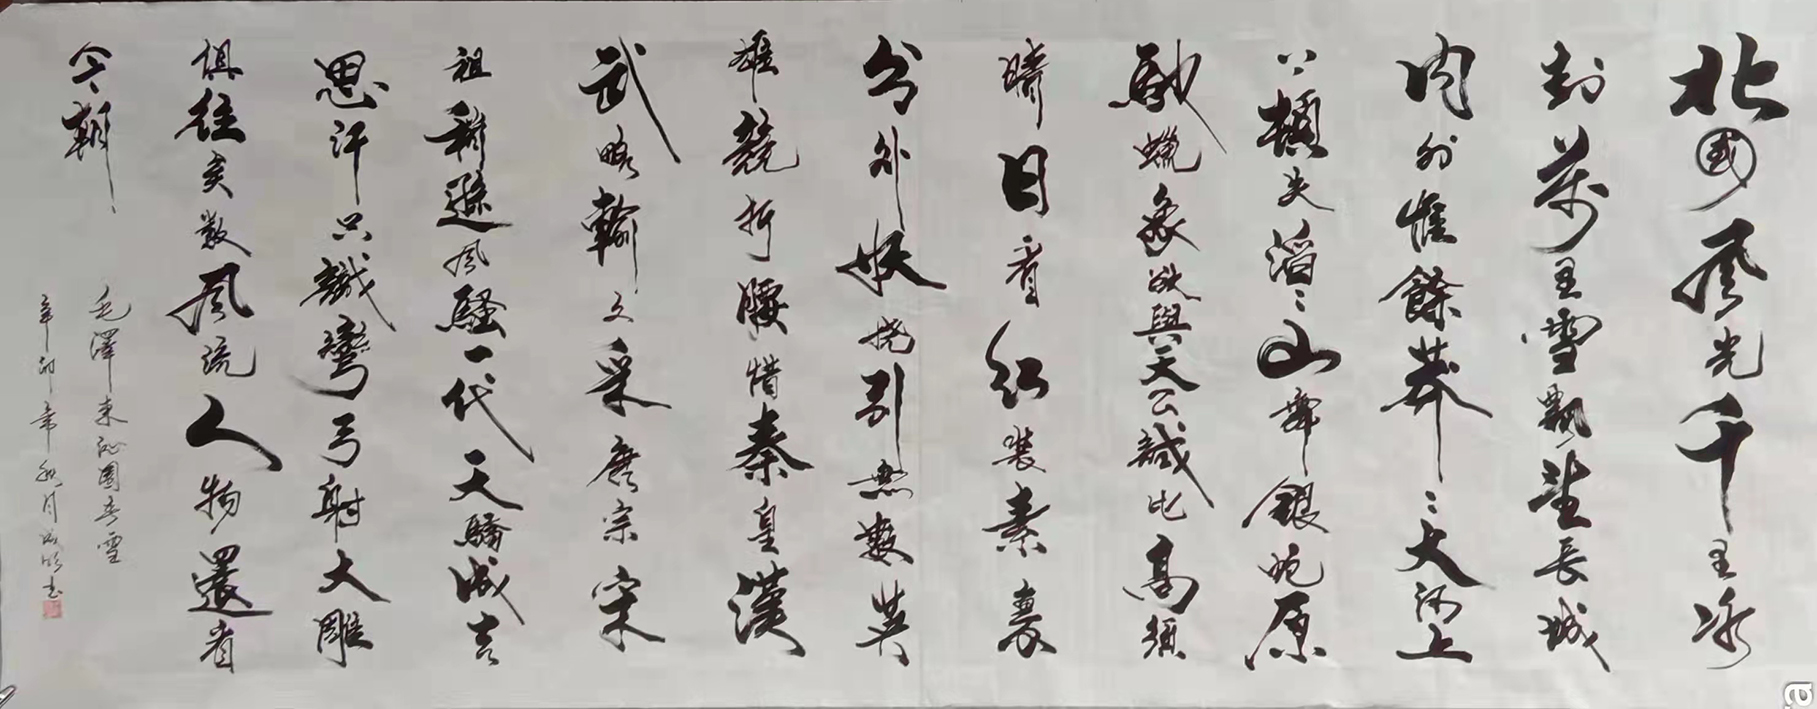 北國風光千里冰
封萬里雪飄望長城
內外惟餘莽〻大河上
下頓失滔〻山舞銀蛇原
馳蠟象欲與天公誠比高須
晴日看紅裝素裹
分外妖嬈引無數英
雄競折腰惜秦皇漢
武略輸文采唐宗宋
祖稍遜風騷一代天驕成吉
思汗只識彎弓射大雕
俱往矣數風流人物還看
今朝
毛澤東沁園春雪
辛卯年秋月